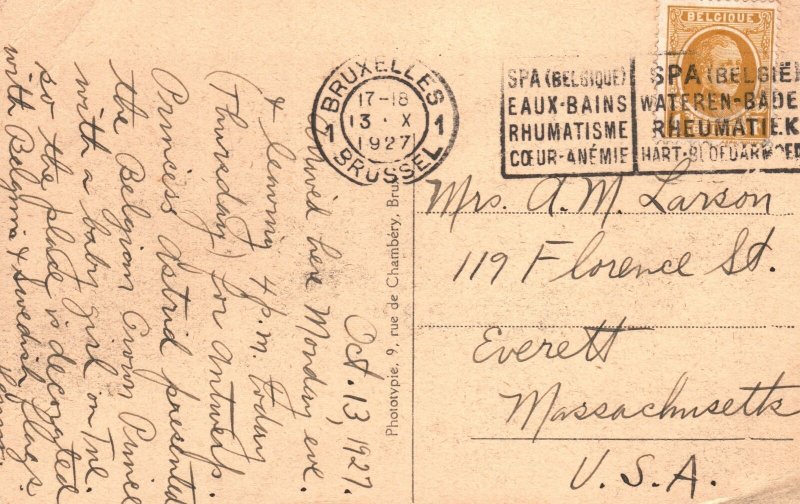 Oct. 13, 1927.
Arrived here Monday eve.
& leaving 4 p.m. today
(Thursday) for Antwerp.
Princess Astrid presented
the Belgian Crown Prince
with a baby girl on Tue.
so the place is decorated
with Belgian & Swedish flags.
Phototypie, 9, rue de Chambéry, Bru
BRUXELLES
17-18
13 · X
1927
1 1
BRUSSEL
SPA (BELGIQUE)
EAUX-BAINS
RHUMATISME
CŒUR-ANÉMIE
SPA (BELGIË
WATEREN-BADE
RHEUMATIEK
HART-BLOEDARMOED
BELGIQUE
Mrs. A. M. Larson
119 Florence St.
Everett
Massachusetts
U. S. A.